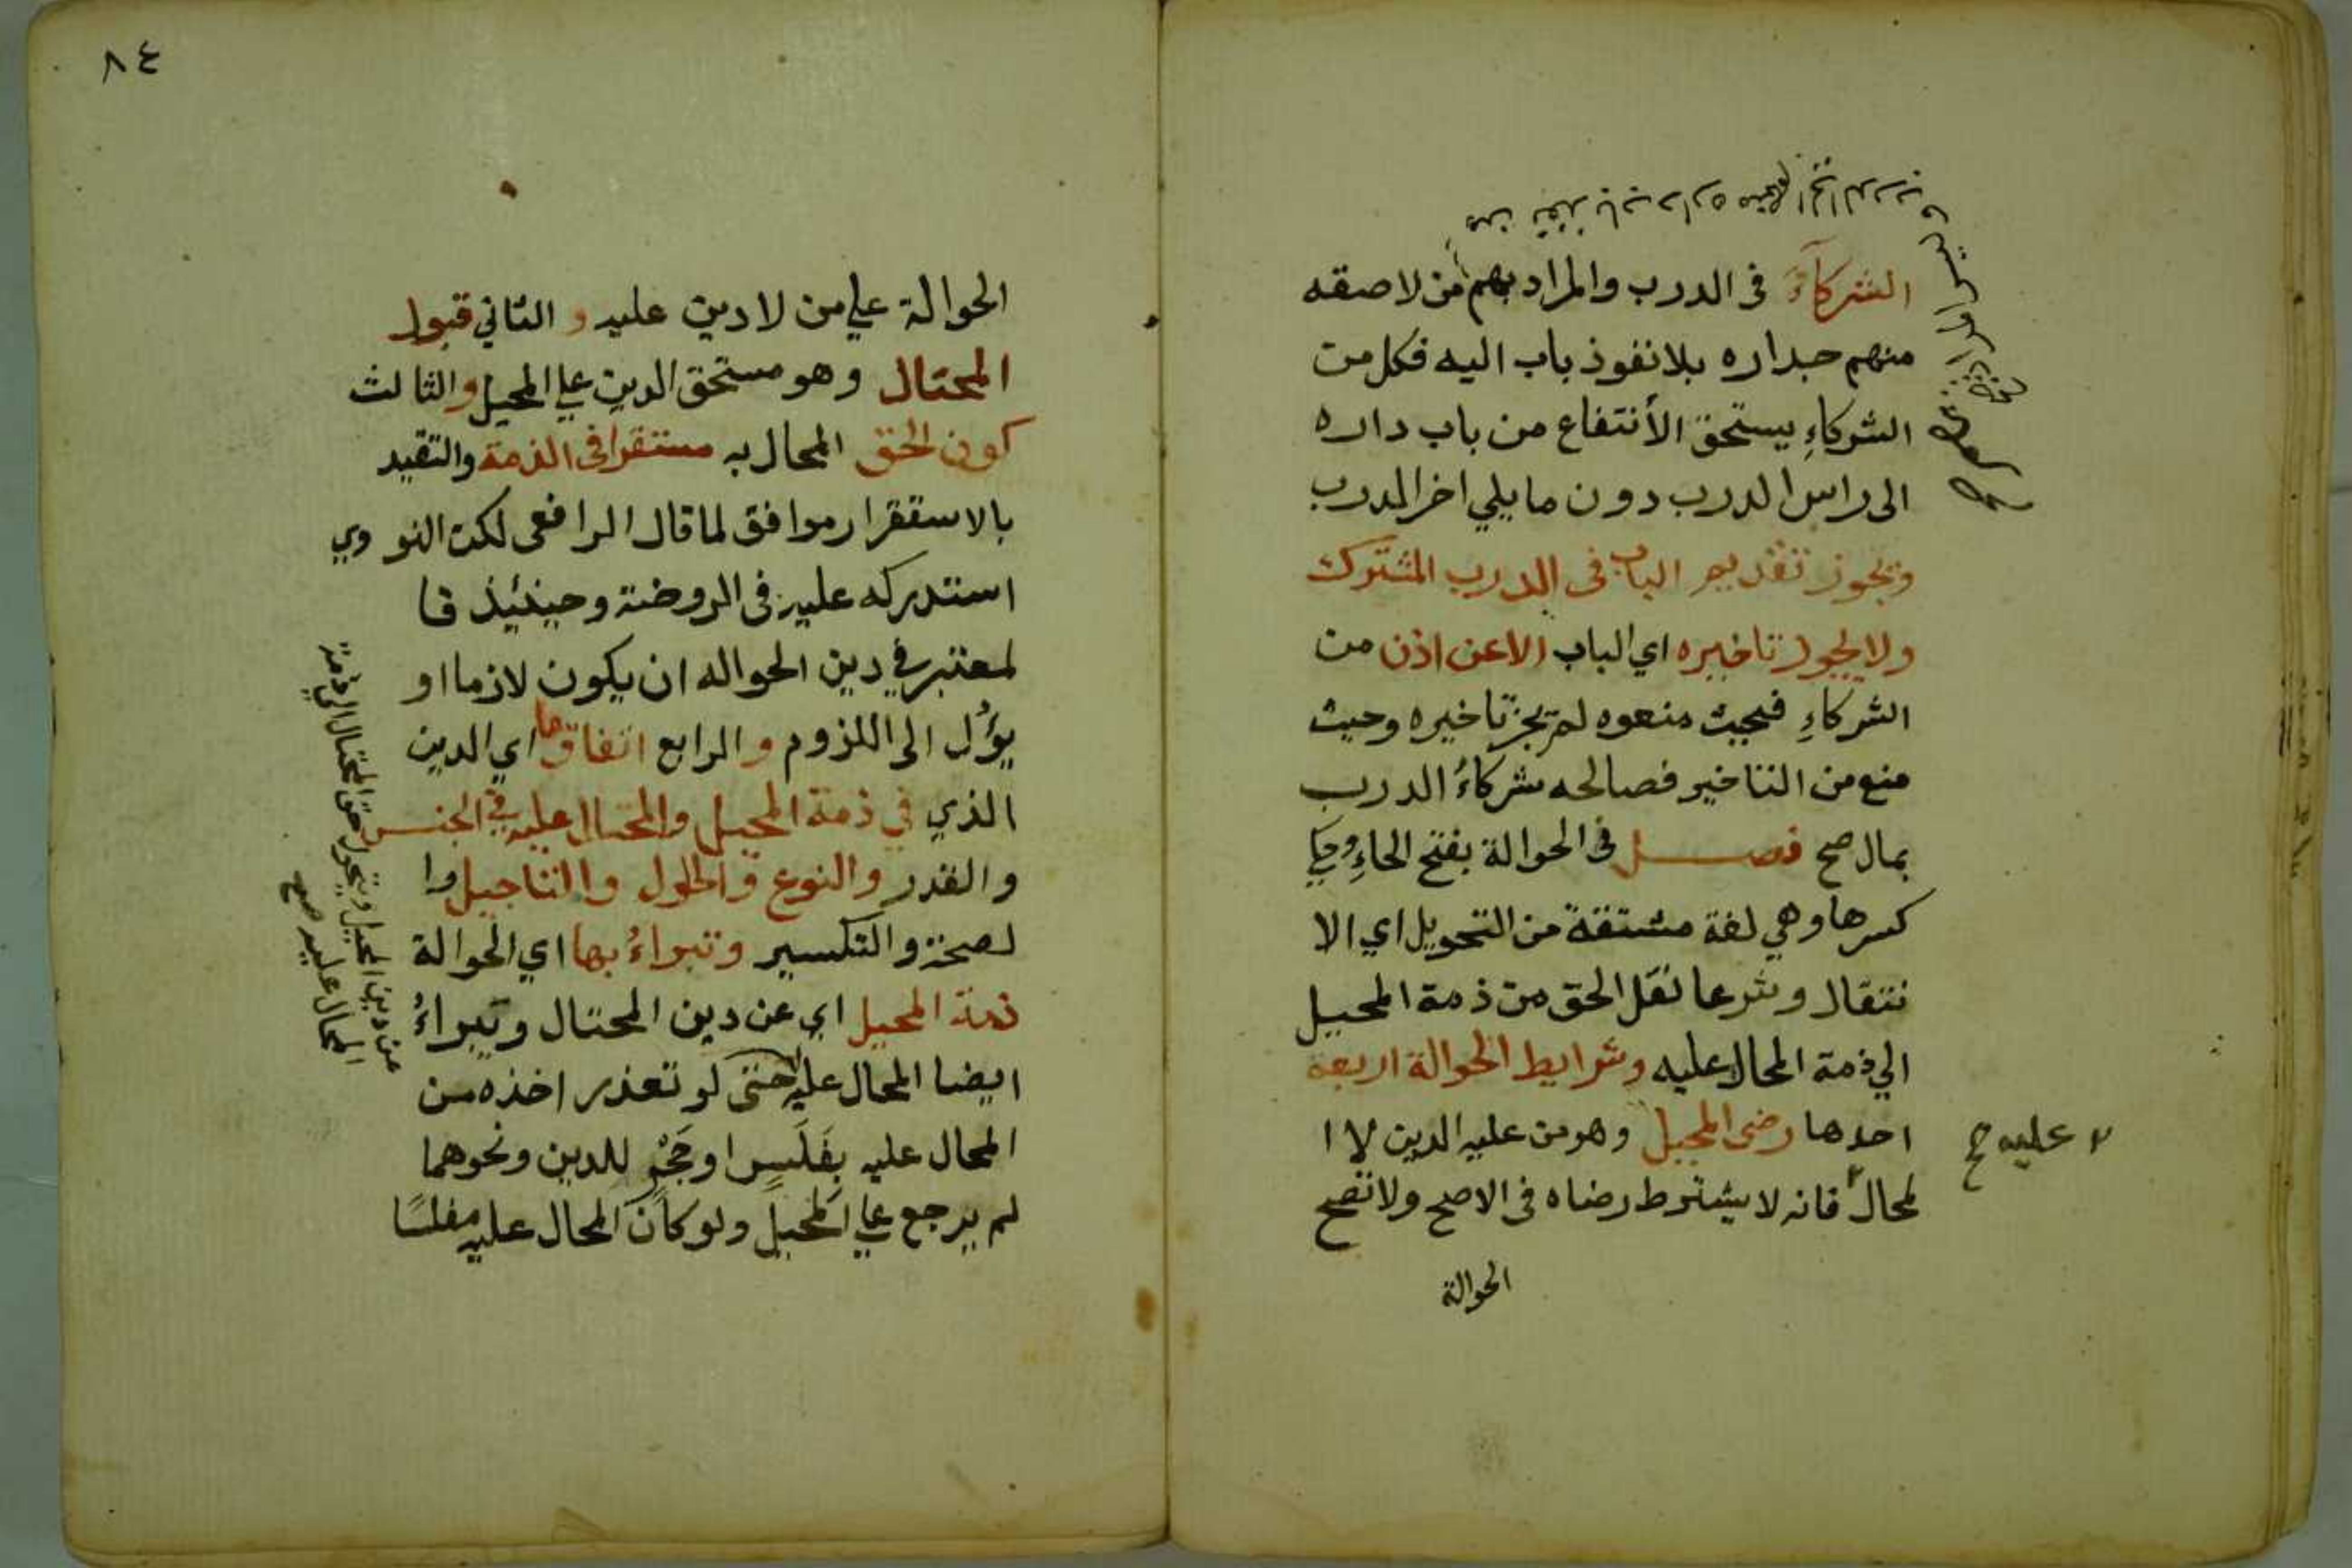 الشركآء في الدرب والمراد بهم من لاصقه
منهم جداره بلا نفوذ باب اليه فكل من
الشركاءِ يستحق الأنتفاع من باب داره
الى راس الدرب دون ما يلي اخر الدرب
ويجوز تقديم الباب في الدرب المشترك
ولا يجوز تاخيره اي الباب الا عن اذن من
الشركاءِ فحيث منعوه لم يجز تاخيره وحيث
منع من التاخير فصالحه شركاءُ الدرب
بمال صح فصل في الحوالة بفتح الحاءِ وحكي
كسرها وهي لغة مشتقة من التحويل اي الا
نتقال وشرعا نقل الحق من ذمة المحيل
الي ذمة المحال عليه وشرايط الحوالة اربعة
احدها رضى المحيل وهو من عليه الدين لا ا
لمحال٢ فانه لا يشترط رضاه في الاصح ولا تصح
٢ عليه صح
الحوالة
٨٤
الحوالة علي من لا دين عليه و الثاني قبول
المحتال وهو مستحق الدين علي المحيل والثالث
كون الحق المحال به مستقرا في الذمة والتقيد
بالاستقرار موافق لما قال الرافعي لكن النووي
استدركه عليه في الروضة وحينئيذ فا
لمعتبر في دين الحواله ان يكون لازما او
يؤل الى اللزوم و الرابع اتفاق ما اي الدين
الذي في ذمة المحيل والمحتال عليه في الجنس
والقدر والنوع والحلول والتاجيل وا
لصحة والتكسير وتبراءُ بها اي الحوالة
ذمة المحيل اي عن دين المحتال وتبراءُ
ايضا المحال عليه حتى لو تعذر اخذه من
المحال عليه بفَلَسٍ او جَحْدٍ للدين ونحوهما
لم يرجع علي المحيل ولو كان المحال عليه مفلسًا
عن دين المحيل ويتحول حق المحتال الى ذمة
المحال عليه صح